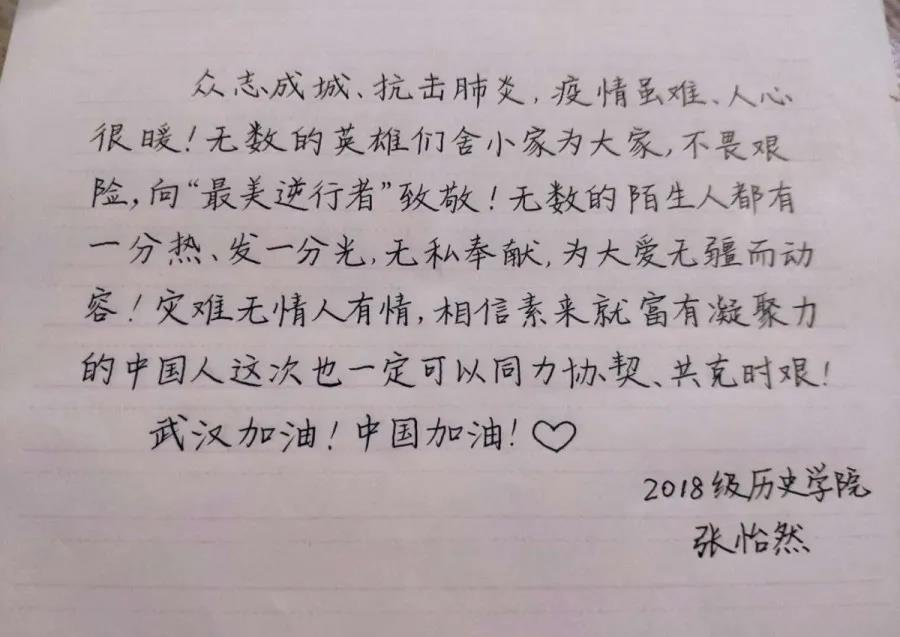 众志成城、抗击肺炎，疫情虽难、人心
很暖！无数的英雄们舍小家为大家，不畏艰
险，向“最美逆行者”致敬！无数的陌生人都有
一分热、发一分光，无私奉献，为大爱无疆而动
容！灾难无情人有情，相信素来就富有凝聚力
的中国人这次也一定可以同力协契、共克时艰！
武汉加油！中国加油！♡
2018级历史学院
张怡然